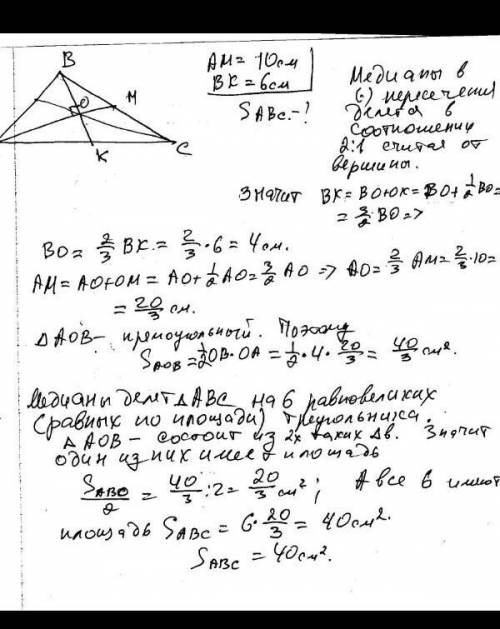 B
O
M
K
C
AM = 10см
BK = 6см
S ABC - ?
Медианы в
(·) пересечения
делятся в
соотношении
2:1 считая от
вершины.
Значит BK = BO+OK = BO + 1/2 BO =
= 3/2 BO =>
BO = 2/3 BK = 2/3 · 6 = 4 см.
AM = AO+OM = AO + 1/2 AO = 3/2 AO => AO = 2/3 AM = 2/3 · 10 =
= 20/3 см.
△ AOB - прямоугольный. Поэтому
S AOB = 1/2 OB · OA = 1/2 · 4 · 20/3 = 40/3 см².
Медианы делят △ ABC на 6 равновеликих
(равных по площади) треугольника.
△ AOB - состоит из 2х таких △в. Значит
один из них имеет площадь
S ABO / 2 = 40/3 : 2 = 20/3 см² ; А все 6 имеют
площадь S ABC = 6 · 20/3 = 40 см².
S ABC = 40 см².